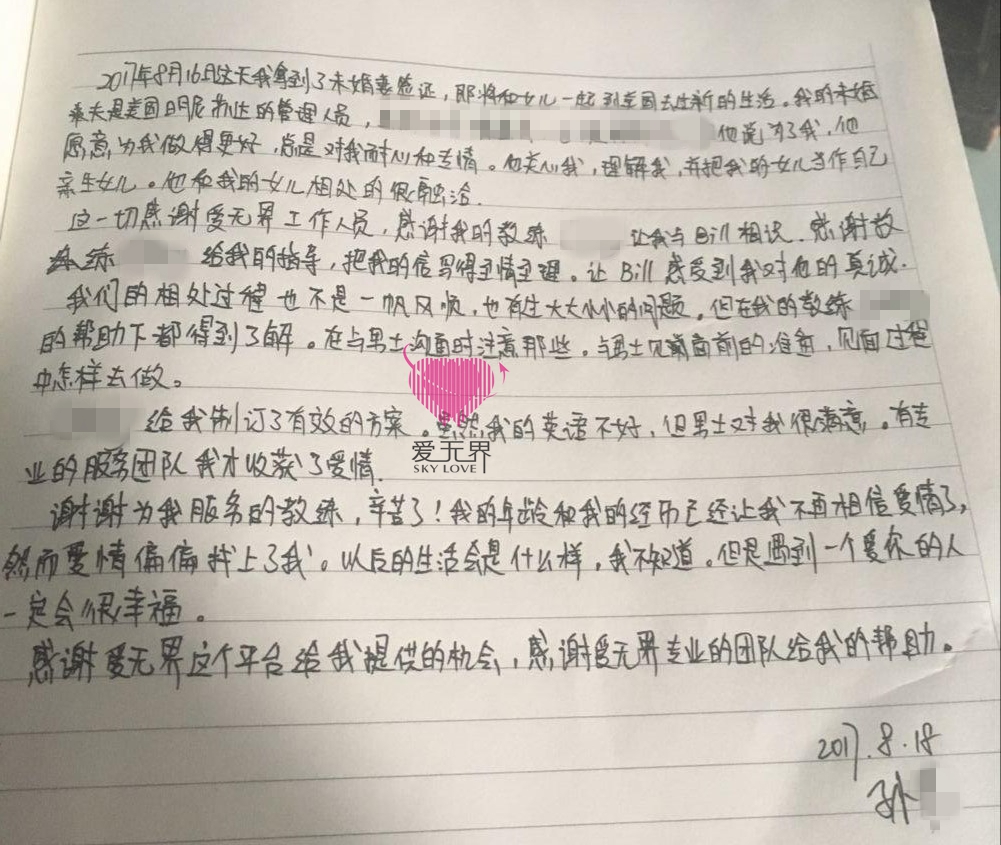 2017年8月16日这天我拿到了未婚妻签证，即将和女儿一起到美国去过新的生活。我的未婚
夫是美国明尼苏达的管理人员，他宠了我，他
愿意为我做得更好，总是对我耐心和专情。他关心我，理解我，并把我的女儿当作自己
亲生女儿。他和我的女儿相处的很融洽.
这一切感谢爱无界工作人员，感谢我的教练 让我与Bill相识.感谢教
练 给我的指导，把我的信写得至情至理。让Bill感受到我对他的真诚.
我们的相处过程也不是一帆风顺，也有大大小小的问题。但在我的教练
的帮助下都得到了解。在与男士沟通时注意那些。与男士见面前的准备，见面过程
中怎样去做。
给我制订了有效的方案。虽然我的英语不好，但男士对我很满意。有专
业的服务团队我才收获了爱情.
爱无界
SKY LOVE
谢谢为我服务的教练，辛苦了！我的年龄和我的经历已经让我不再相信爱情了，
然而爱情偏偏找上了我。以后的生活会是什么样，我不知道。但是遇到一个爱你的人
一定会很幸福。
感谢爱无界这个平台给我提供的机会，感谢爱无界专业的团队给我的帮助。
2017.8.18
孙